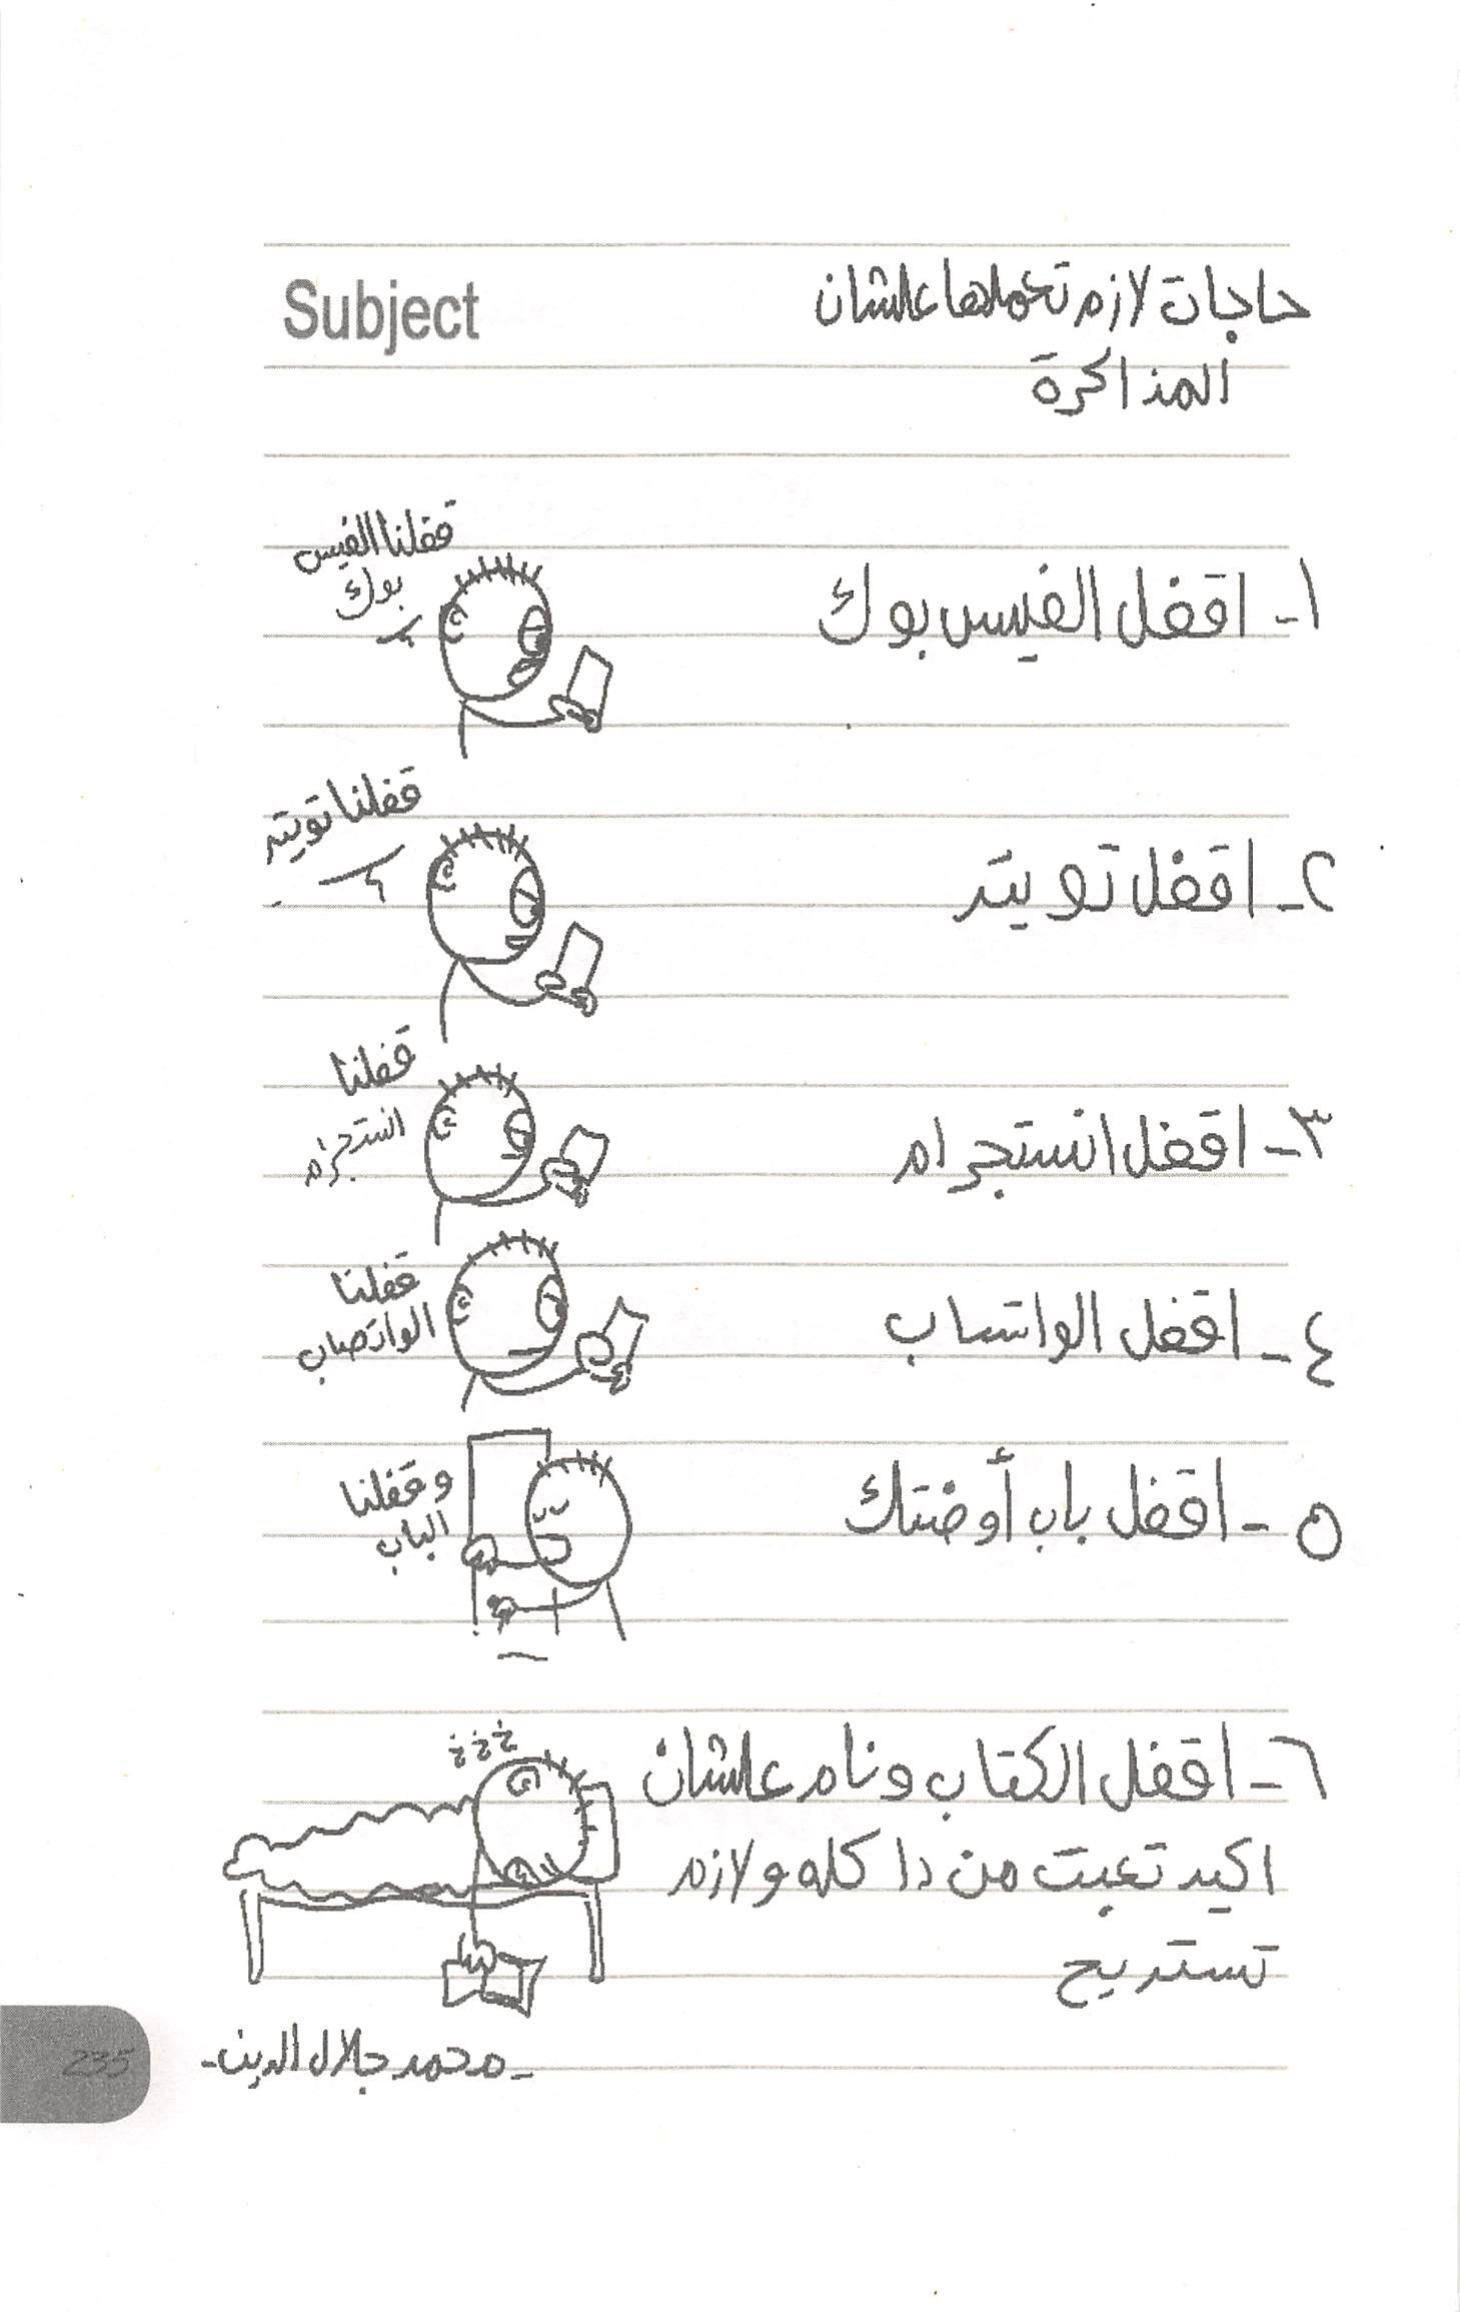 Subject
حاجات لازم تعملها علشان
المذاكرة
١- اقفل الفيس بوك
قفلنا الفيس
بوك
٢- اقفل تويتر
قفلنا تويتر
٣- اقفل انستجرام
قفلنا
انستجرام
٤- اقفل الواتساب
قفلنا
الواتصاب
٥- اقفل باب أوضتك
وقفلنا
الباب
٦- اقفل الكتاب ونام علشان
اكيد تعبت من دا كله ولازم
تستريح
خ خ خ
-محمد جلال الدين-
235